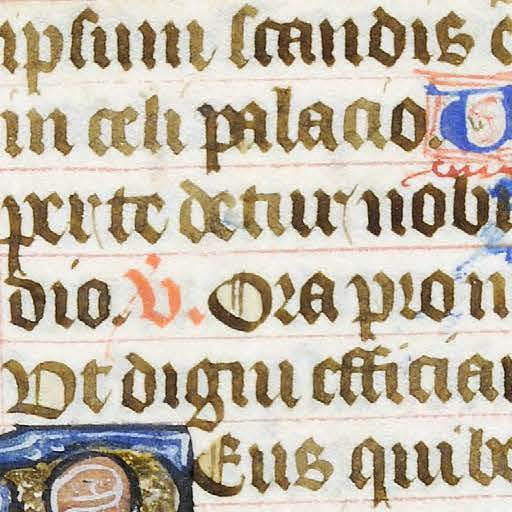 ipsum scandis c
in celi palacio. U
per te detur nobi
dio. V. Ora pro n
Ut digni efficiam
Deus quibe